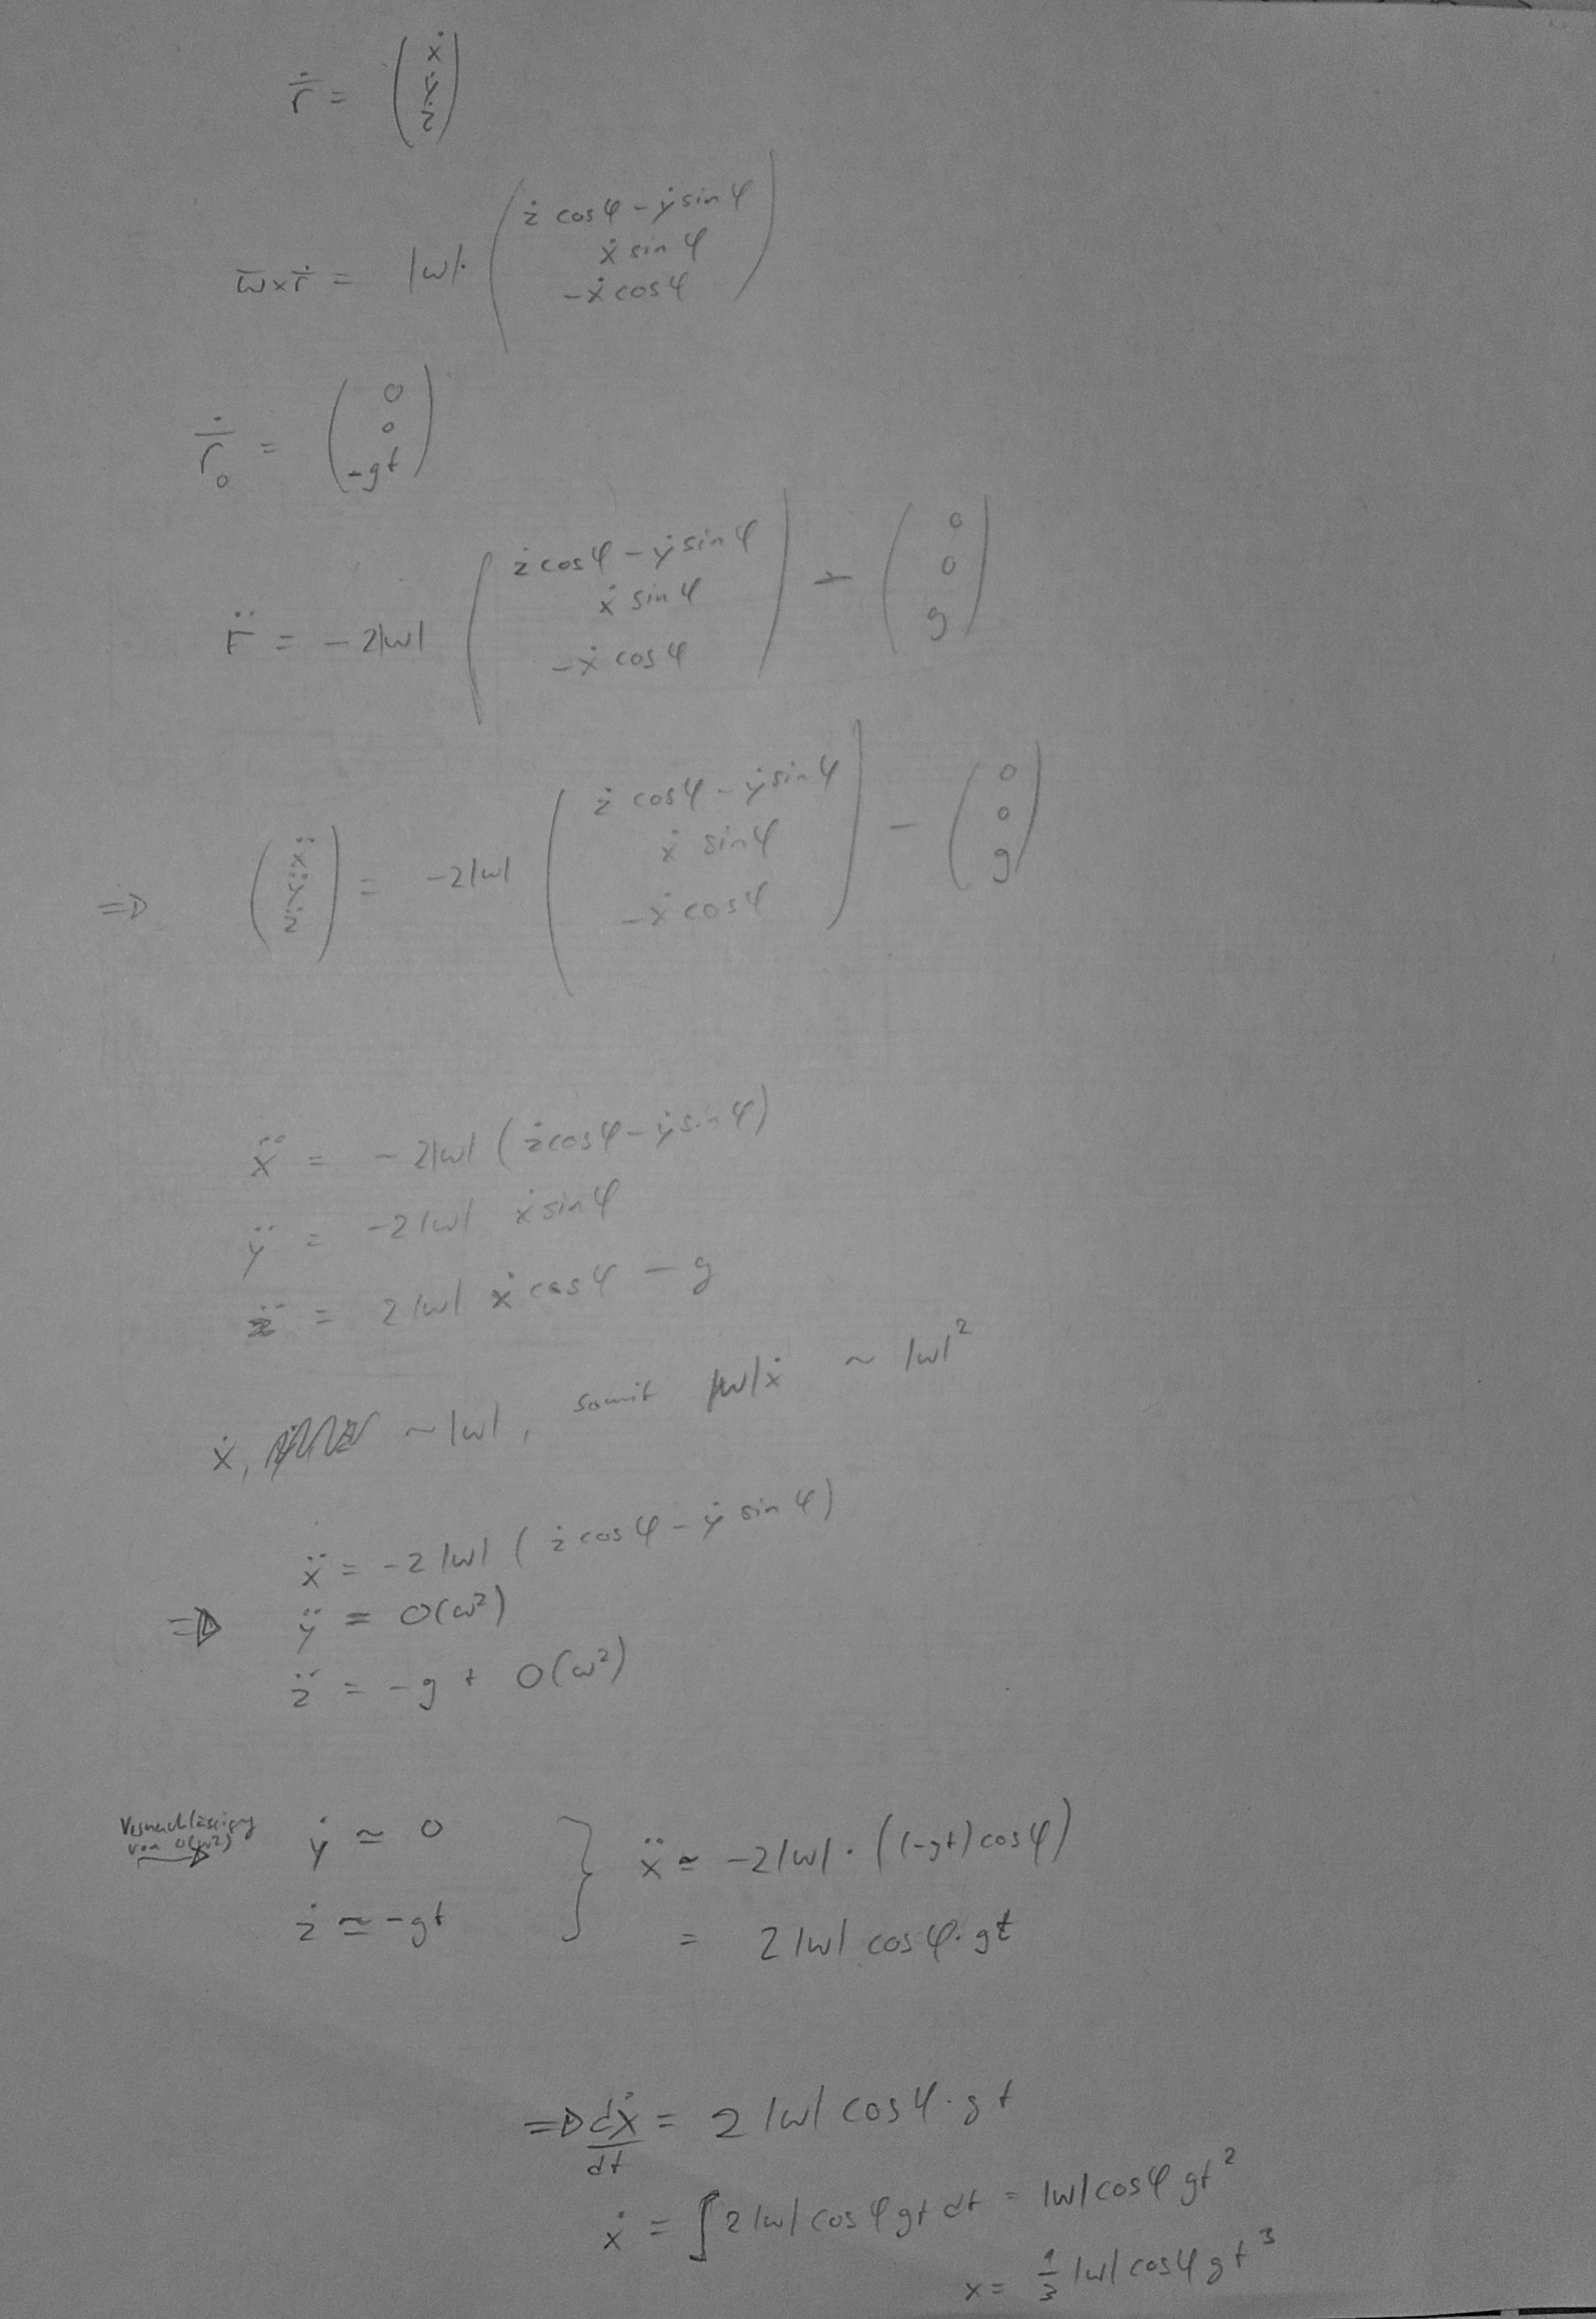 r̄̇ = (ẋ ẏ ż)
ω̄ × r̄̇ = |ω| · (ż cos φ − ẏ sin φ, ẋ sin φ, −ẋ cos φ)
r̄̇₀ = (0, 0, −gt)
r̈ = −2|ω| (ż cos φ − ẏ sin φ, ẋ sin φ, −ẋ cos φ) − (0, 0, g)
⇒ (ẍ ÿ z̈) = −2|ω| (ż cos φ − ẏ sin φ, ẋ sin φ, −ẋ cos φ) − (0, 0, g)
ẍ = −2|ω| (ż cos φ − ẏ sin φ)
ÿ = −2|ω| ẋ sin φ
z̈ = 2|ω| ẋ cos φ − g
ẋ, ~ |ω|, somit |ω|ẋ ~ |ω|²
ẍ = −2|ω| (ż cos φ − ẏ sin φ)
⇒ ÿ = O(ω²)
z̈ = −g + O(ω²)
Vernachlässigung
von O(ω²)
→ ẏ ≃ 0 } ẍ ≃ −2|ω| · ((−gt) cos φ)
ż ≃ −gt = 2|ω| cos φ · gt
⇒ dẋ/dt = 2|ω| cos φ · gt
ẋ = ∫ 2|ω| cos φ gt dt = |ω| cos φ gt²
x = 1/3 |ω| cos φ gt³